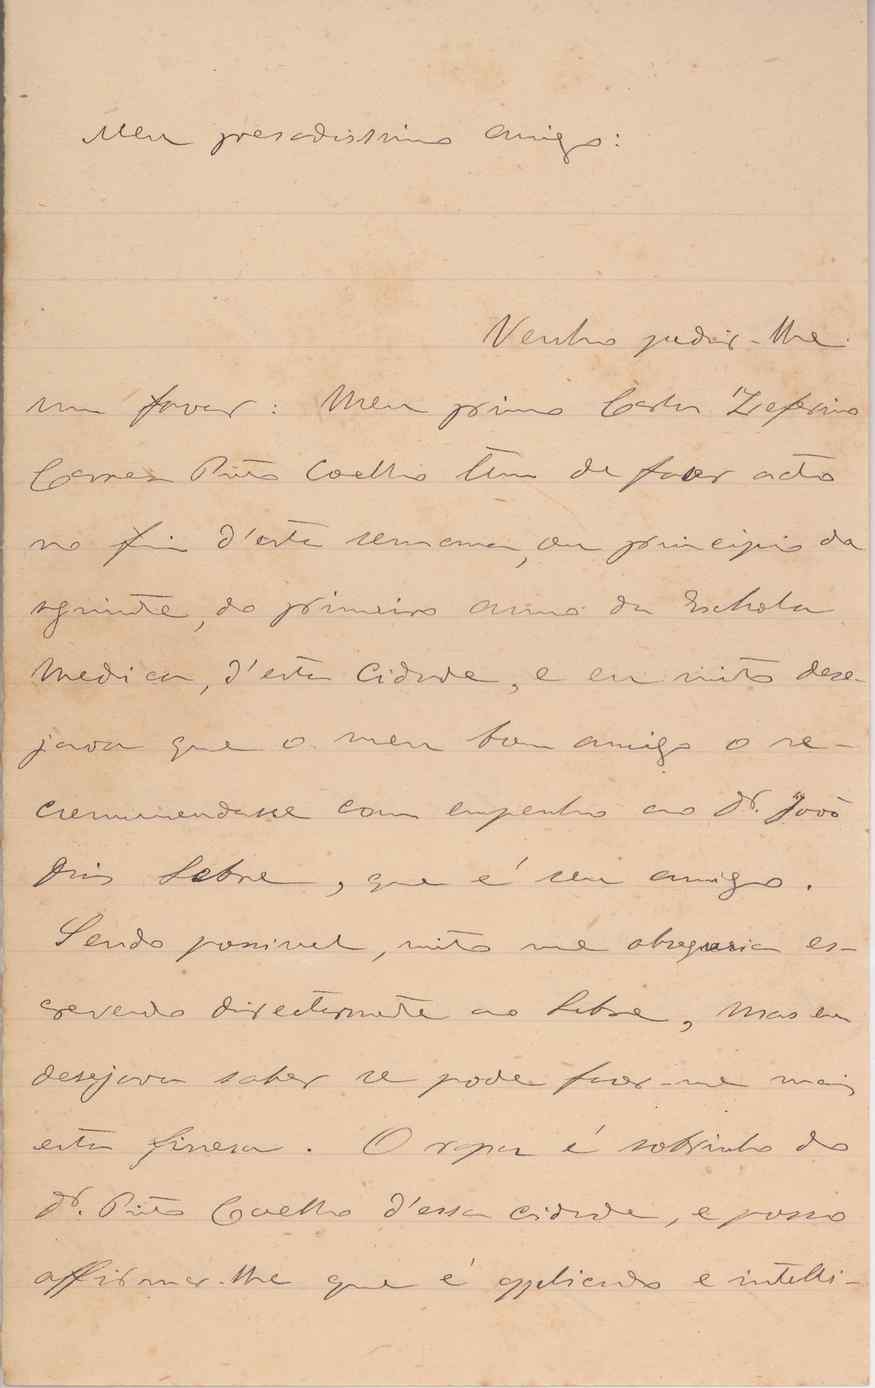 Meu presadissimo amigo:
Venho pedir-lhe
um favor: Meu primo Carlos Zeferino
Correa Pinto Coelho tem de fazer acto
no fim d'esta semana, ou principio da
seguinte, do primeiro anno da Eschola
Medica, d'esta cidade, e eu muito dese-
java que o meu bom amigo o re-
commendasse com empenho ao Dr. João
Dias Lebre, que é seu amigo.
Sendo possivel, muito me obrigaria es-
crevendo directamente ao Lebre, mas eu
desejava saber se pode fazer-me mais
esta finesa. O rapaz é sobrinho do
Dr. Pinto Coelho d'essa cidade, e posso
affirmar-lhe que é applicado e intelli-